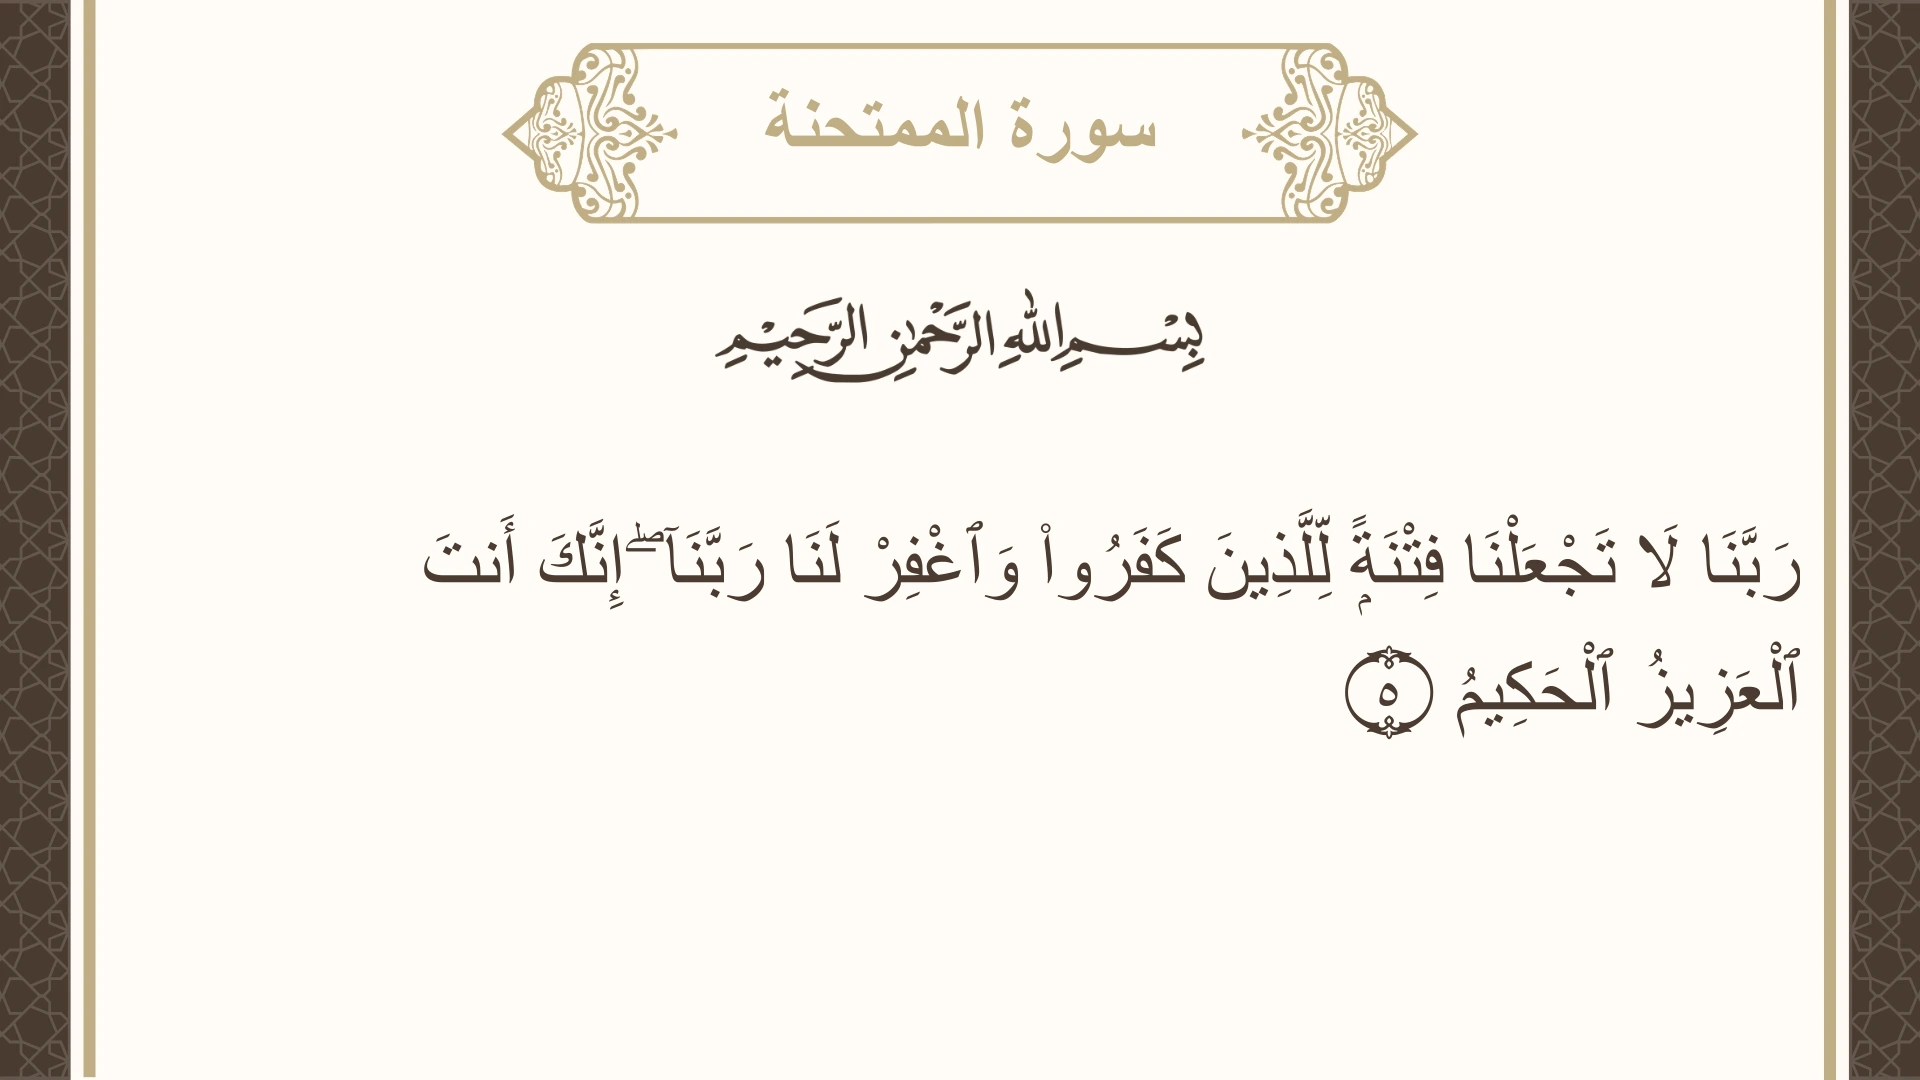 سورة الممتحنة
بِسْمِ اللهِ الرَّحْمٰنِ الرَّحِيْمِ
رَبَّنَا لَا تَجْعَلْنَا فِتْنَةًۭ لِّلَّذِينَ كَفَرُوا۟ وَٱغْفِرْ لَنَا رَبَّنَآ ۖ إِنَّكَ أَنتَ
ٱلْعَزِيزُ ٱلْحَكِيمُ ۝٥